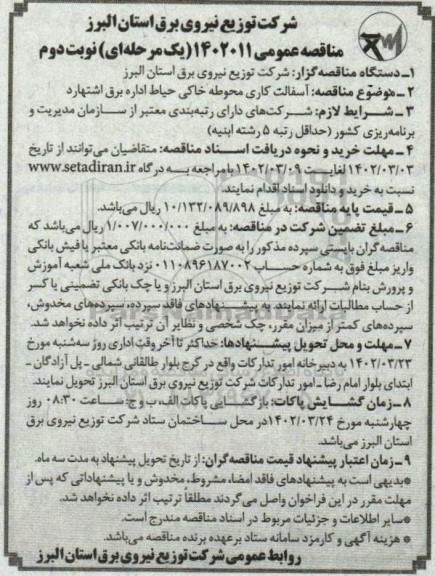 شرکت توزیع نیروی برق استان البرز
مناقصه عمومی ۱۴۰۲۰۱۱ (یک مرحله‌ای) نوبت دوم
۱-دستگاه مناقصه‌گزار: شرکت توزیع نیروی برق استان البرز
۲-موضوع مناقصه: آسفالت کاری محوطه خاکی حیاط اداره برق اشتهارد
۳-شرایط لازم: شرکت‌های دارای رتبه‌بندی معتبر از سازمان مدیریت و
برنامه‌ریزی کشور (حداقل رتبه ۵ رشته ابنیه)
۴-مهلت خرید و نحوه دریافت اسناد مناقصه: متقاضیان می‌توانند از تاریخ
۱۴۰۲/۰۳/۰۳ لغایت ۱۴۰۲/۰۳/۰۹ با مراجعه به درگاه www.setadiran.ir
نسبت به خرید و دانلود اسناد اقدام نمایند.
۵-قیمت پایه مناقصه: به مبلغ ۱۰/۱۳۲/۰۸۹/۸۹۸ ریال می‌باشد.
۶-مبلغ تضمین شرکت در مناقصه: به مبلغ ۱/۰۰۷/۰۰۰/۰۰۰ ریال می‌باشد که
مناقصه‌گران بایستی سپرده مذکور را به صورت ضمانت‌نامه بانکی معتبر یا فیش بانکی
واریز مبلغ فوق به شماره حساب ۰۱۱۰۸۹۶۱۸۷۰۰۲ نزد بانک ملی شعبه آموزش
و پرورش بنام شرکت توزیع نیروی برق استان البرز و یا چک بانکی تضمینی یا کسر
از حساب مطالبات ارائه نمایند. به پیشنهادهای فاقد سپرده، سپرده‌های مخدوش،
سپرده‌های کمتر از میزان مقرر، چک شخصی و نظایر آن ترتیب اثر داده نخواهد شد.
۷-مهلت و محل تحویل پیشنهادها: حداکثر تا آخر وقت اداری روز سه‌شنبه مورخ
۱۴۰۲/۰۳/۲۳ به دبیرخانه امور تدارکات واقع در کرج بلوار طالقانی شمالی-پل آزادگان-
ابتدای بلوار امام رضا-امور تدارکات شرکت توزیع نیروی برق استان البرز تحویل نمایند.
۸-زمان گشایش پاکات: بازگشایی پاکات الف، ب و ج ساعت ۰۸:۳۰ روز
چهارشنبه مورخ ۱۴۰۲/۰۳/۲۴ در محل ساختمان ستاد شرکت توزیع نیروی برق
استان البرز می‌باشد.
۹-زمان اعتبار پیشنهاد قیمت مناقصه‌گران: از تاریخ تحویل پیشنهاد به مدت سه ماه.
*بدیهی است به پیشنهادهای فاقد امضا، مشروط، مخدوش و یا پیشنهاداتی که پس از
مهلت مقرر در این فراخوان واصل می‌گردند مطلقا ترتیب اثر داده نخواهد شد.
*سایر اطلاعات و جزئیات مربوط در اسناد مناقصه مندرج است.
* هزینه آگهی و کارمزد سامانه ستاد برعهده برنده مناقصه می‌باشد.
روابط عمومی شرکت توزیع نیروی برق استان البرز